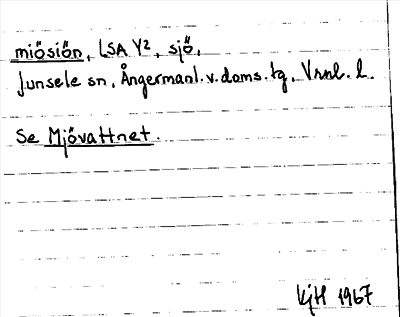 miösiön, LSA Y2, sjö,
Junsele sn, Ångermanl.v.doms.tg, Vrnl. l.
Se Mjövattnet.
KjH 1967